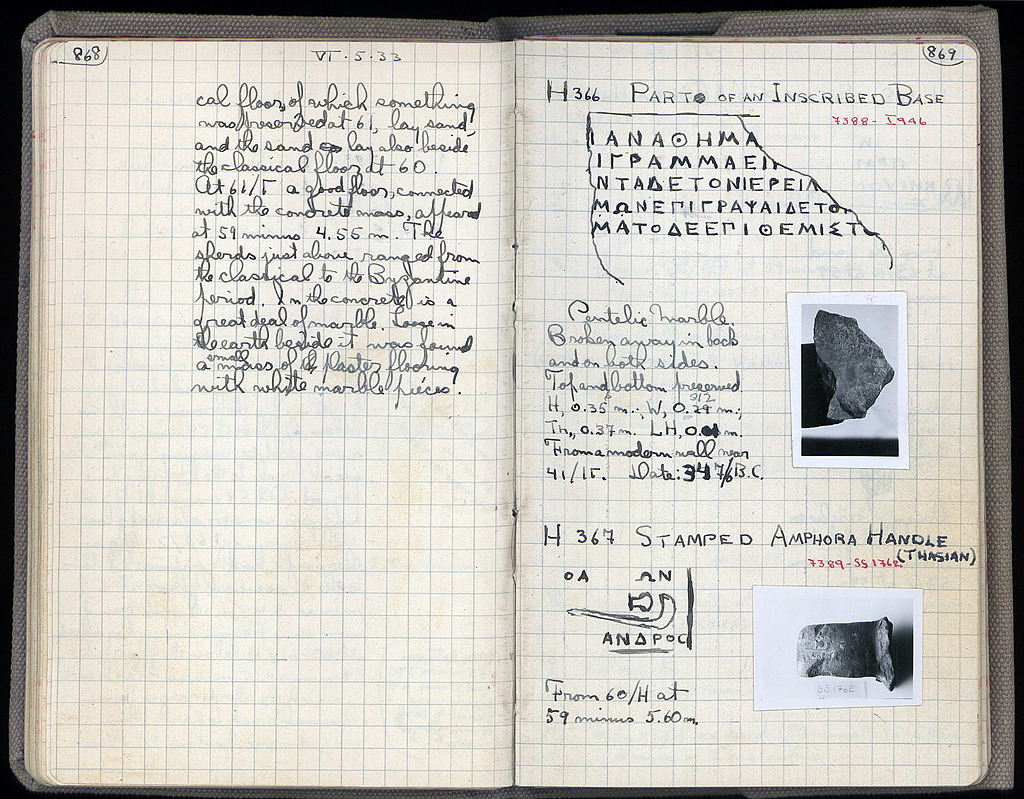 868
VI·5·33
cal floor, of which something
was preserved at 61, lay sand,
and the sand lay also beside
the classical floor at 60.
At 61/Γ a good floor, connected
with the concrete mass, appeared
at 59 minus 4.55 m. The
sherds just above ranged from
the classical to the Byzantine
period. In the concrete is a
great deal of marble. Loose in
the earth beside it was found
a small mass of plaster flooring
with white marble pieces.
869
H 366 PART OF AN INSCRIBED BASE
7388 - I 946
ΙΑΝΑΘΗΜΑ
ΙΓΡΑΜΜΑΕΙ
ΝΤΑΔΕΤΟΝΙΕΡΕΙΑ
ΜΩΝΕΠΙΓΡΑΨΑΙΔΕΤΟ
ΜΑΤΟΔΕΕΠΙΘΕΜΙΣΤ
Pentelic Marble.
Broken away in back
and on both sides.
Top and bottom preserved
H, 0.35 m.; W, 0.29 m.;
Th., 0.37 m. LH, 0.01 m.
From a modern wall near
41/ΙΓ. Date: 347/6 B.C.
H 367 STAMPED AMPHORA HANDLE
(THASIAN)
7389 - SS 1762
ΘΑ ΩΝ
ΑΝΔΡΟΣ
From 60/H at
59 minus 5.60 m.